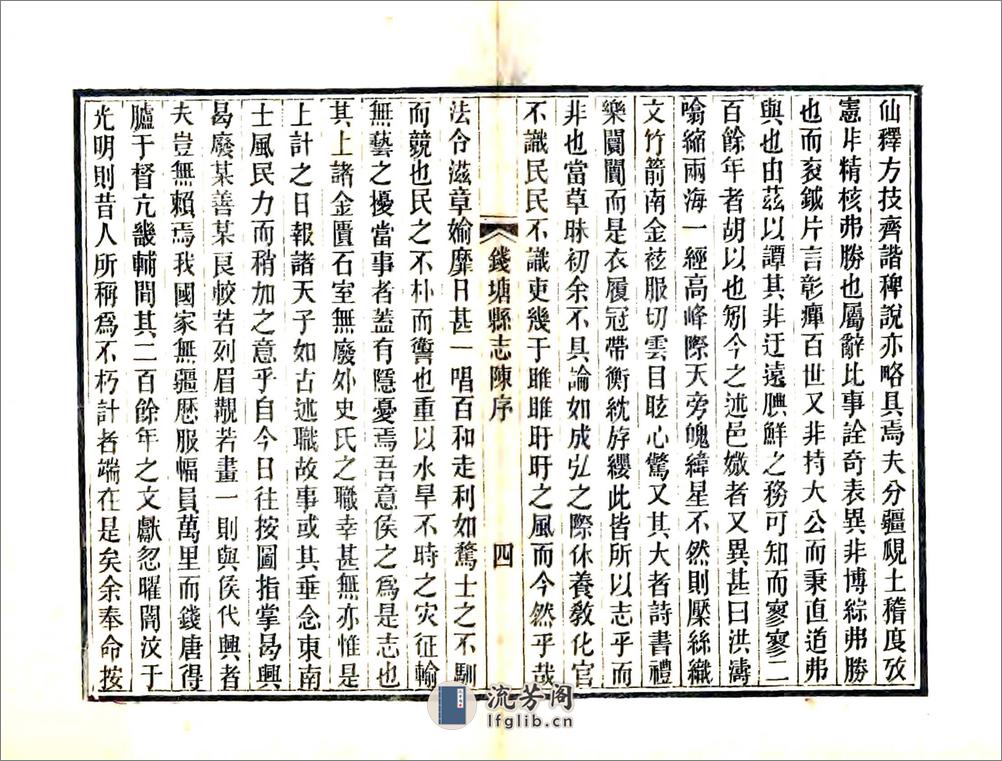 仙釋方技齊諧稗說亦略具焉夫分疆硯土稽度攷
憲非精核弗勝也屬辭比事詮奇表異非博綜弗勝
也而衮鉞片言彰癉百世又非持大公而秉直道弗
與也由茲以譚其非迂遠腆鮮之務可知而寥寥二
百餘年者胡以也矧今之述邑媺者又異甚曰洪濤
噏縮兩海一經高峰際天旁魄緯星不然則壓絲織
文竹箭南金莅服切雲目眩心驚又其大者詩書禮
樂闠闠而是衣履冠帶衡紞脖纓此皆所以志乎而
非也當草昧初余不具論如成弘之際休養教化官
不識民民不識吏幾于睢睢盱盱之風而今然乎哉
錢塘縣志陳序 四
法令滋章媮靡日甚一唱百和走利如騖士之不馴
而競也民之不朴而訾也重以水旱不時之灾征輸
無藝之擾當事者蓋有隱憂焉吾意侯之爲是志也
其上諸金匱石室無廢外史氏之職幸甚無亦惟是
上計之日報諸天子如古述職故事或其垂念東南
士風民力而稍加之意乎自今日往按圖指掌曷興
曷廢某善某良較若列眉覩若畫一則與侯代興者
夫豈無賴焉我國家無疆歷服幅員萬里而錢唐得
臚于督亢畿輔間其二百餘年之文獻忽曜闇汶于
光明則昔人所稱爲不朽計者端在是矣余奉命按
流芳阁
lfglib.cn